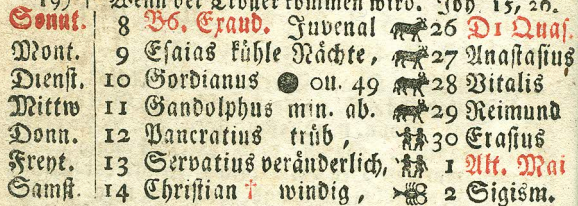 Wenn der Tröster kommen wird. Joh 15, 26.
Sonnt. 8 B6. Exaud. Juvenal 26 D1 Quas.
Mont. 9 Esaias kühle Nächte, 27 Anastasius
Dienst. 10 Gordianus ou. 49 28 Vitalis
Mittw 11 Gandolphus min. ab. 29 Reimund
Donn. 12 Pancratius trüb, 30 Erastus
Freyt. 13 Servatius veränderlich, 1 Alt. Mai
Samst. 14 Christian † windig, 2 Sigism.